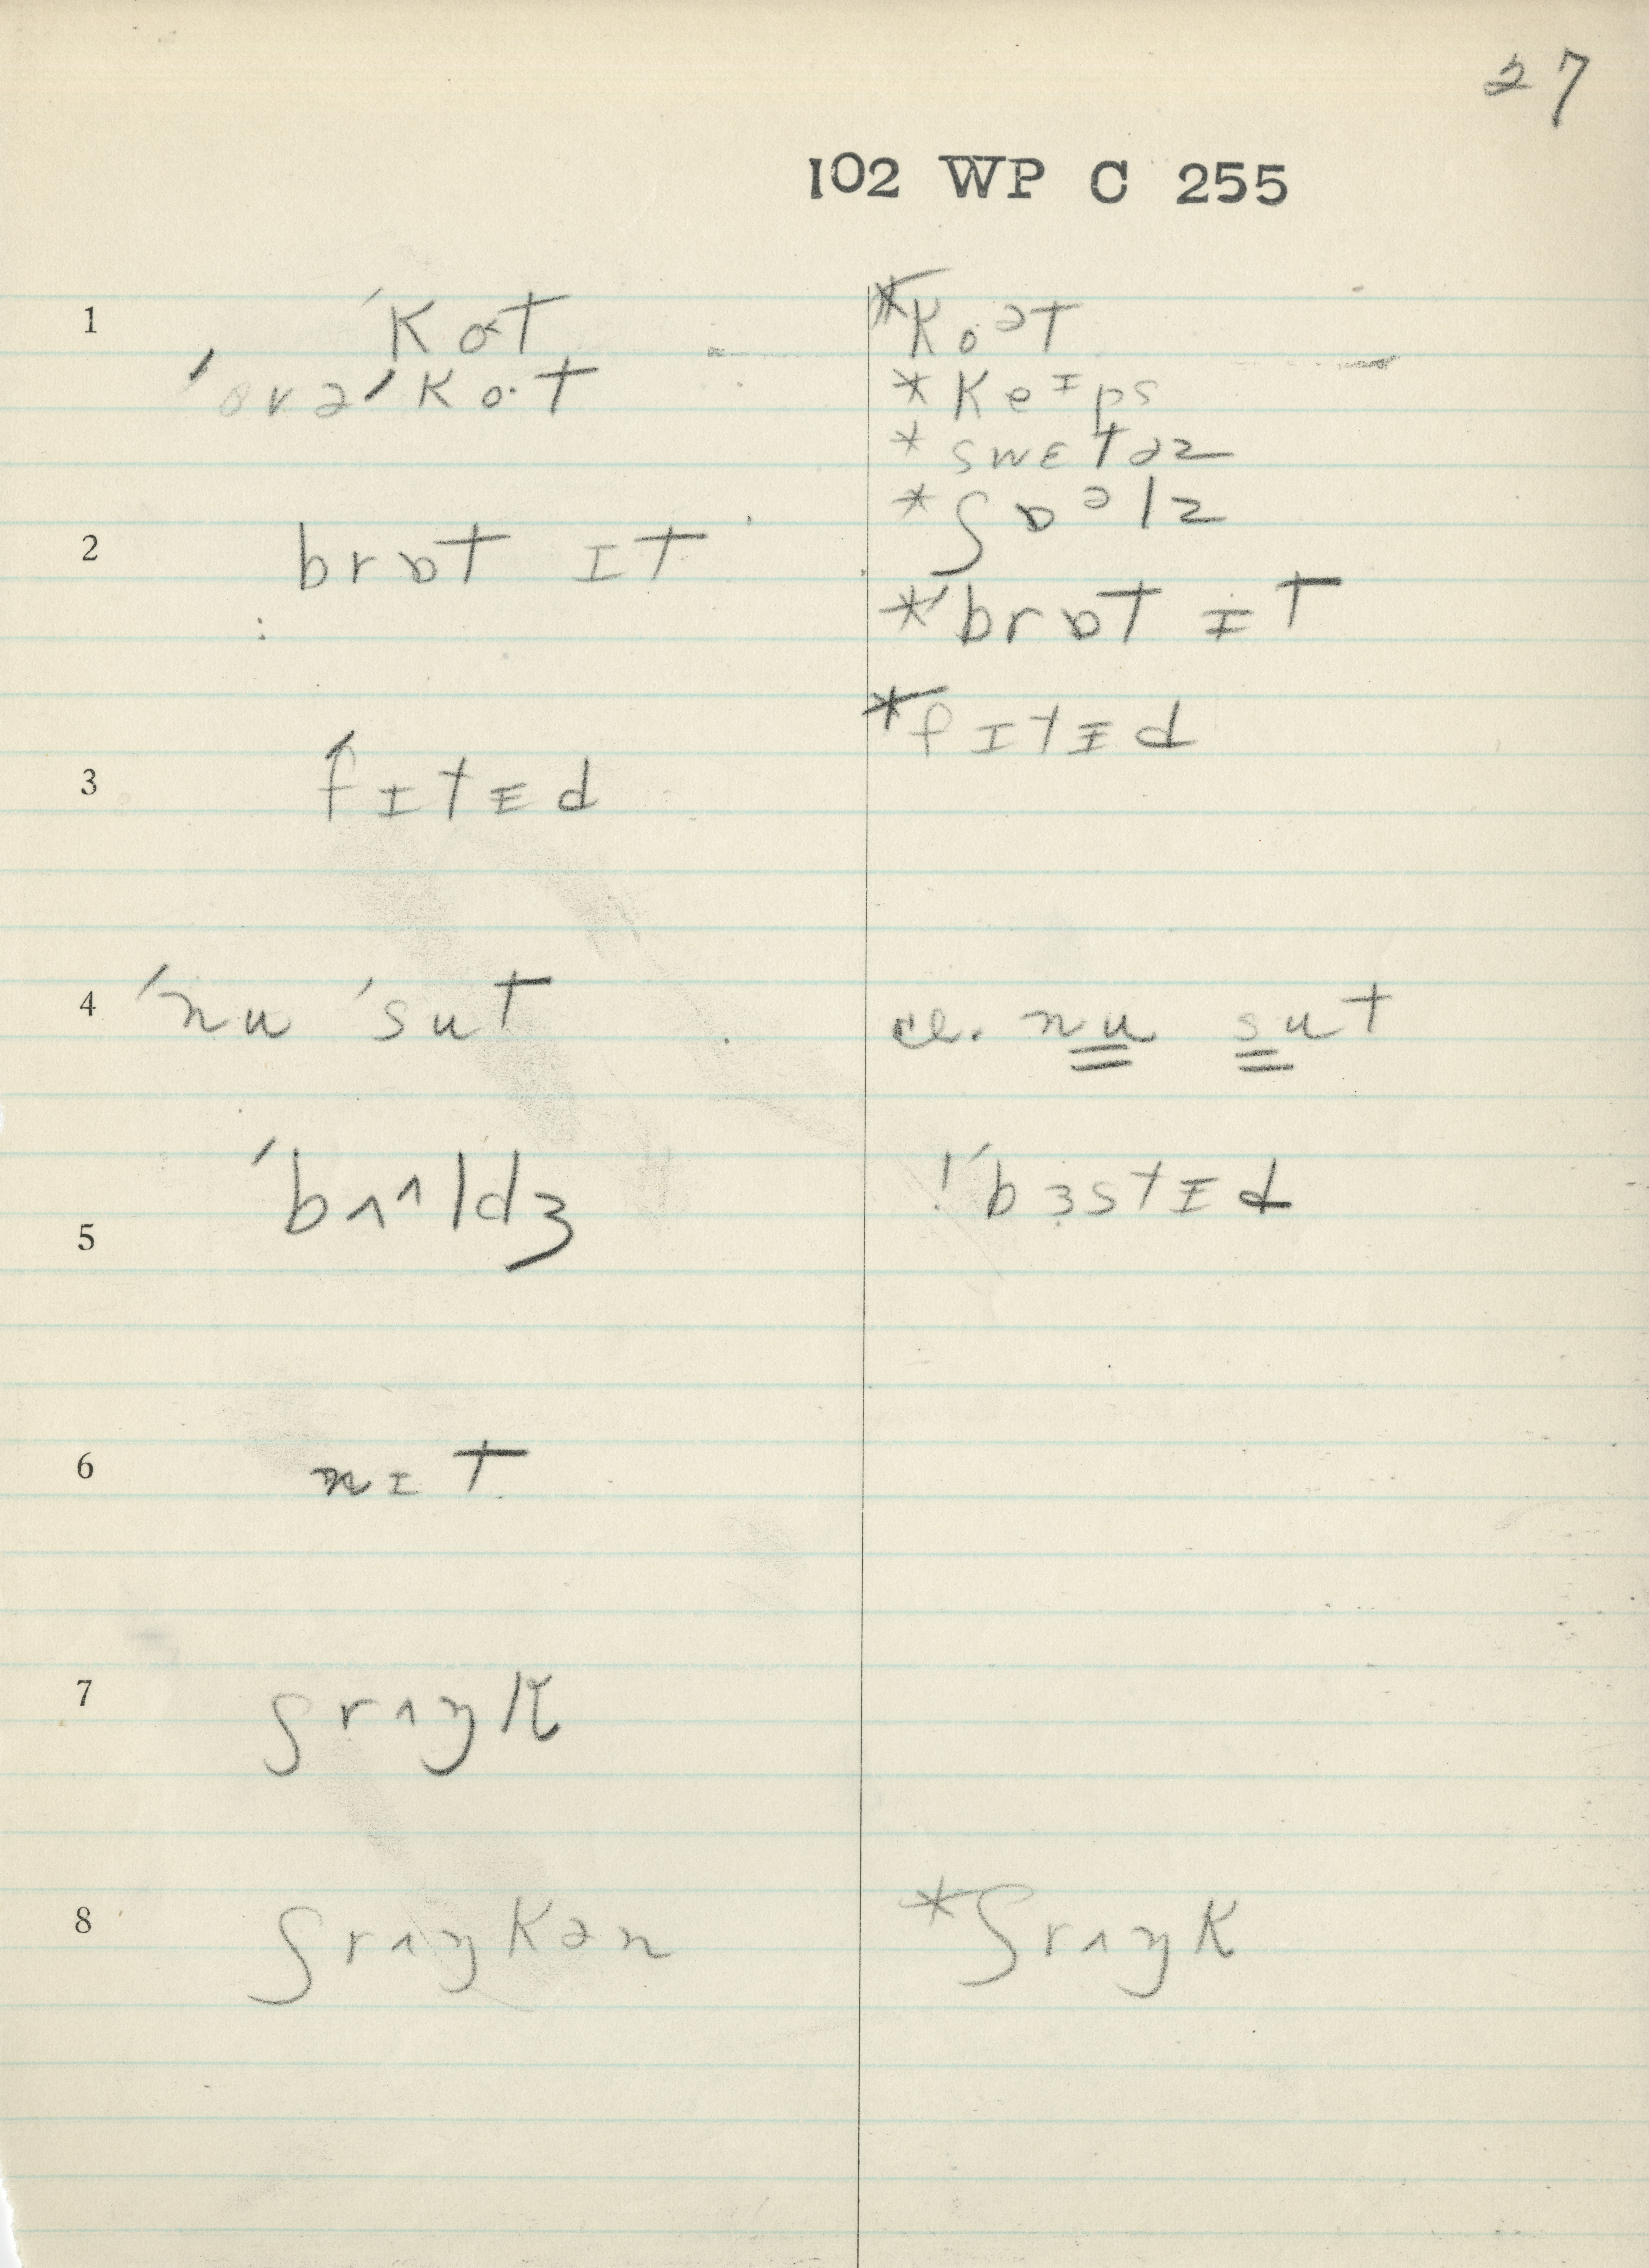 27
102 WP C 255
1 ˈkot
ˈovəˈkot
*koᵊt
*keᴵps
*swɛtəz
*ʃɒᵊlz
2 brɒt ɪt
*ˈbrɒt ɪt
3 ˈfɪtᵻd
*fɪtᵻd
4 ˈnu ˈsut
cr. nu sut
5 ˈbʌ^ldʒ
!ˈbɜstᵻd
6 nɪt
7 ʃrʌŋk
8 ʃrʌŋkən
*ʃrʌŋk